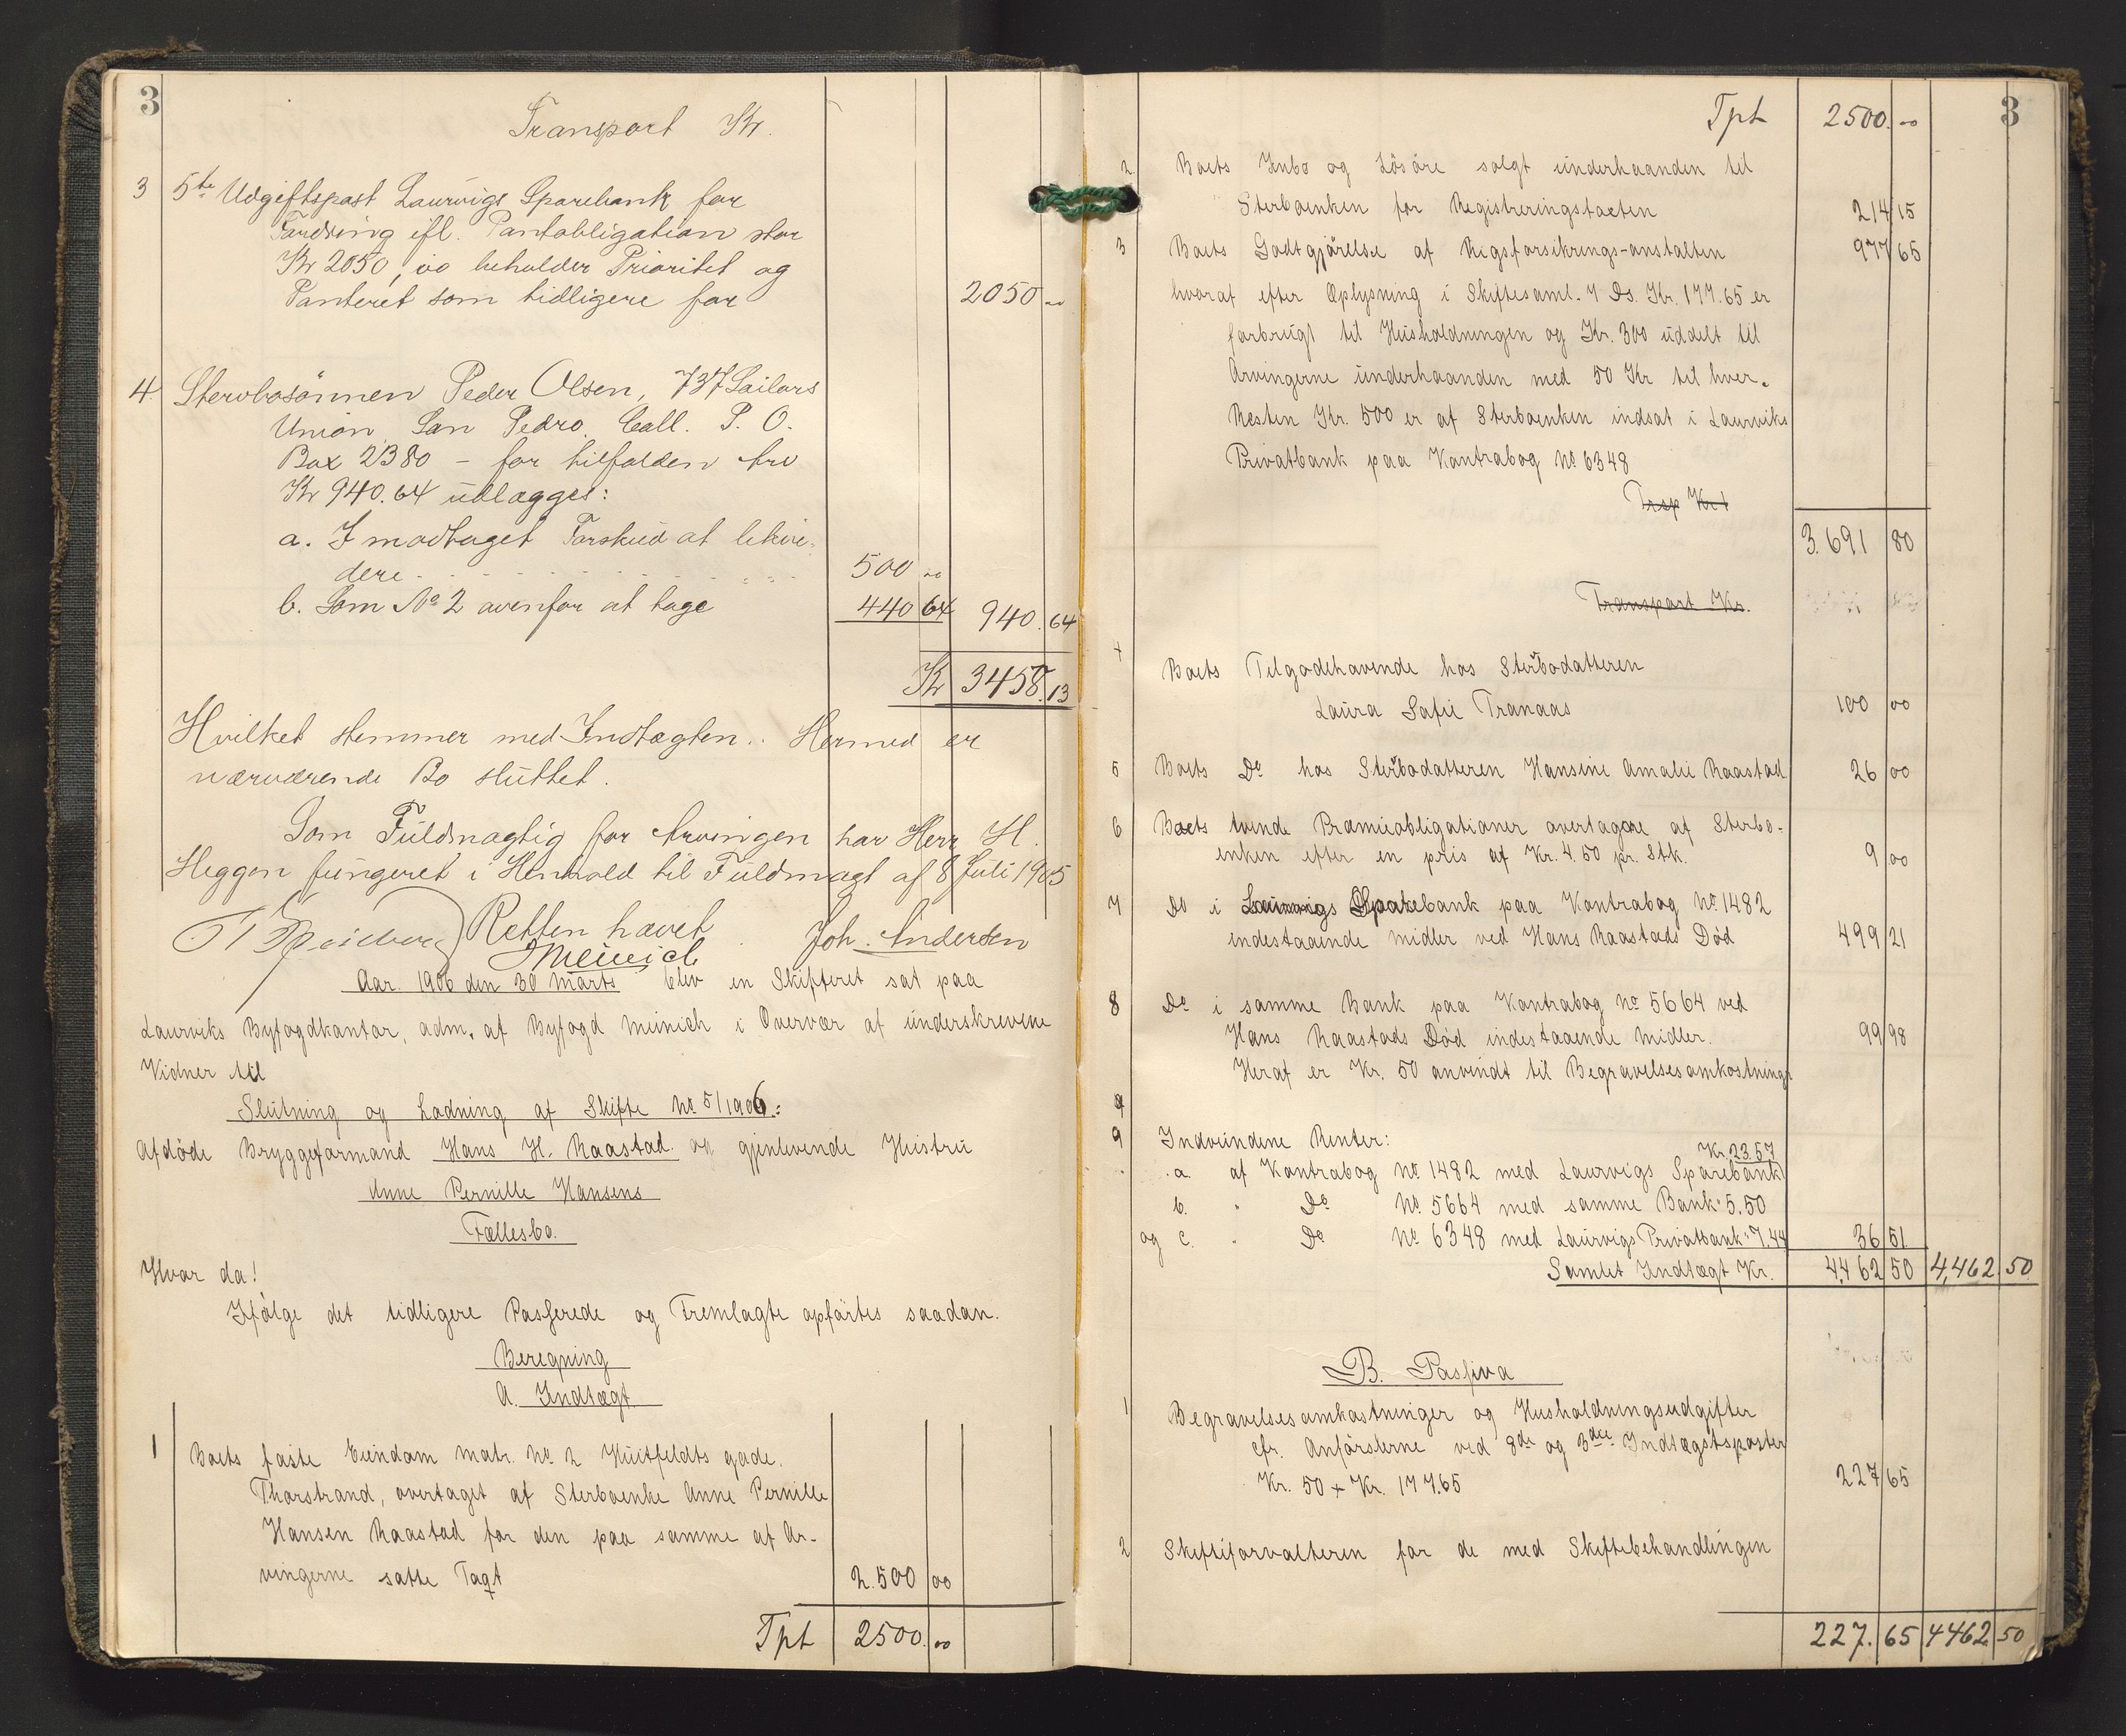 3
Transport Kr.
3 5te Udgiftspost Laurvigs Sparebank for
Fordring ifl. Pantobligation stor
Kr 2050,00 beholder Prioritet og
Panteret som tidligere for 2050 00
4 Stervbosönnen Peder Olsen, 737 Sailors
Union San Pedro. Call. P. O.
Box 2380 – for tilfalden Arv
Kr 940.64 udlægges:
a. I modtaget Forskud at likvi-
dere 500 00
b. Som No 2 ovenfor at tage 440 64 940. 64
Kr 3458.13
Hvilket stemmer med Indtægten. Hermed er
nærværende Bo sluttet.
Som Fuldmægtig for Arvingen har Herr H.
Heggen fungeret i Henhold til Fuldmagt af 8 Juli 1905
Retten hævet
Munich
Joh. Andersen
Aar. 1906 den 30 Marts blev en Skifteret sat paa
Laurviks Byfogdkontor, adm. af Byfogd Munich i Overvær af underskrevne
Vidner til
Slutning og Lodning af Skifte No 5/1906:
Afdöde Bryggeformand Hans H. Raastad og gjenlevende Hustru
Anne Pernille Hansens
Fællesbo.
Hvor da!
Ifölge det tidligere Passerede og Fremlagte opförtes saadan.
Beregning
A. Indtægt
1 Boets faste Eiendom matr. No 2 Huitfeldts gade.
Thorstrand, overtaget af Sterboenke Anne Pernille
Hansen Raastad for den paa samme af Ar-
vingerne satte Taxt 2.500 00
Tpt 2500. 00
3
Tpt 2500. 00
2. Boets Inbo og Lösöre solgt underhaanden til
Sterboenken for Registreringstaxten 214 15
3 Boets Godtgjörelse af Rigsforsikrings-anstalten 977 65
hvoraf efter Oplysning i Skiftesaml. 7 Ds. Kr. 177.65 er
forbrugt til Husholdningen og Kr. 300 uddelt til
Arvingerne underhaanden med 50 Kr til hver.
Resten Kr. 500 er af Sterboenken indsat i Laurviks
Privatbank paa Kontrabog No 6348
Trsp Kr
3.691 80
Transport Kr.
4 Boets Tilgodehavende hos Sterbodatteren
Laura Sofie Tranaas 100 00
5 Boets Do hos Sterbodatteren Hansine Amalie Raastad 26 00
6 Boets tvende Præmieobligationer overtagne af Sterbo-
enken efter en pris af Kr. 4.50 pr. Stk. 9 00
7 Do i Laurvigs Sparebank paa Kontrabog No 1482
indestaaende midler ved Hans Raastads Död 499 21
8 Do i samme Bank paa Kontrabog No 5664 ved
Hans Raastads Död indestaaende Midler. 99 98
Heraf er Kr. 50 anvendt til Begravelsesomkostninger
9
9 Indvundene Renter: Kr. 23.57
a. af Kontrabog No 1482 med Laurvigs Sparebank
b. " Do No 5664 med samme Bank " 5.50
og c. " Do No 6348 med Laurvigs Privatbank " 7.44 36 51
Samlet Indtægt Kr. 4,462 50 4,462. 50
B. Passiva
1 Begravelsesomkostninger og Husholdningsudgifter
cfr. Anförslerne ved 8de og 3die Indtægtsposter
Kr. 50 + Kr. 177.65 227 65
2 Skifteforvalteren for de med Skiftebehandlingen
227. 65 4462. 50